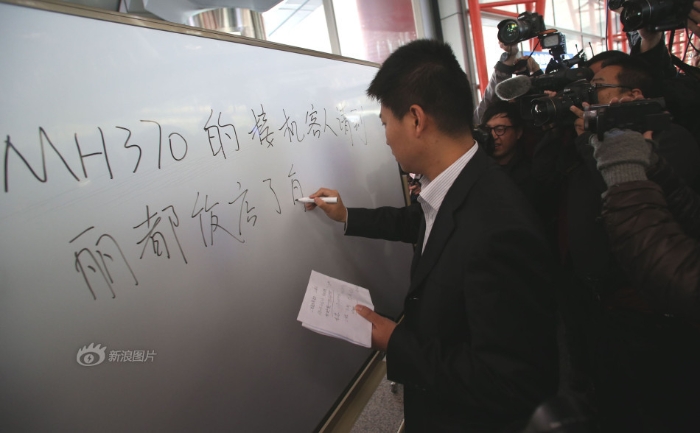 MH370的接机客人请到
丽都饭店了
新浪图片